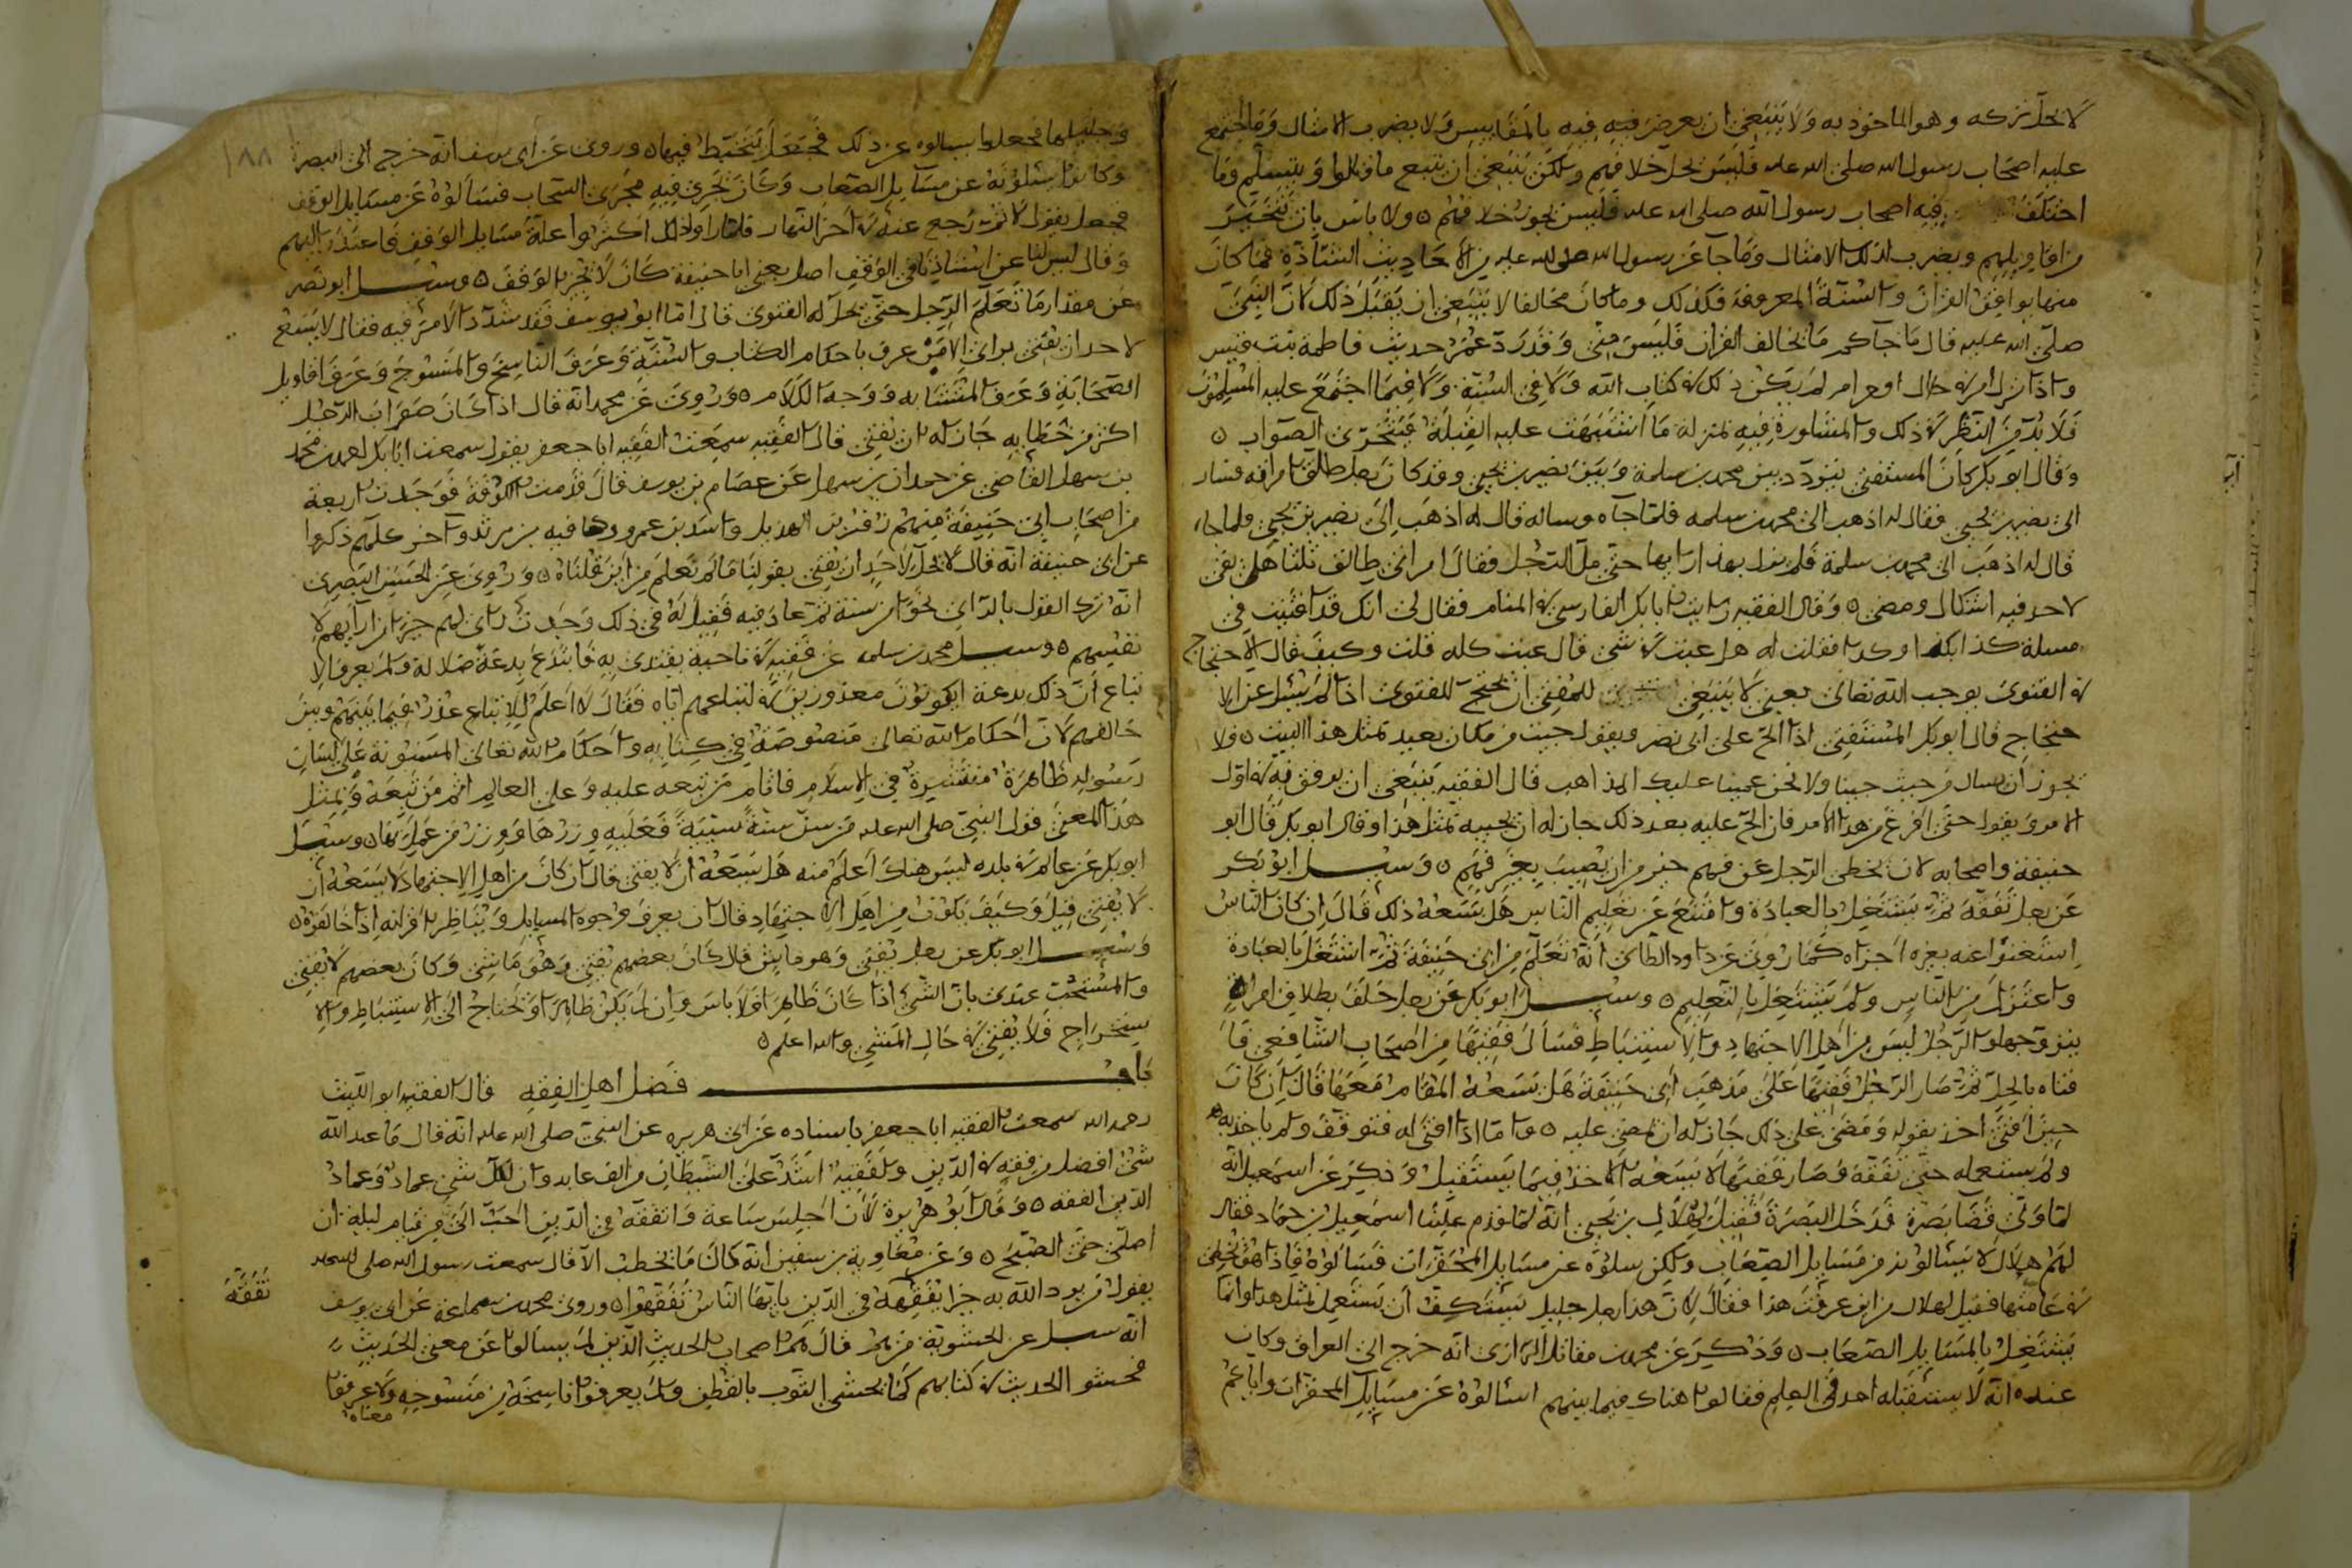 لا يحل تركه وهو الماخوذ به ولا ينبغي ان يعرض فيه فيه بالمقاييس ولا يضرب الامثال وما اجتمع
عليه اصحاب رسول الله صلى الله عليه فليس يحل خلافهم ولكن ينبغي ان يتبع ما قالوا ويتسلم وما
اختلف فيه اصحاب رسول الله صلى الله عليه فليس يجوز خلافهم ولا باس بان يتخير
من اقاويلهم ويضرب لذلك الامثال وما جآ عن رسول الله صلى الله عليه من الاحاديث الشاذة فما كان
منها يوافق القرآن والسنة المعروفة فكذلك وما كان مخالفا لا ينبغي ان يقبل ذلك لان النبي
صلى الله عليه قال ما جآكم مما يخالف القران فليس مني وقد رد عمر حديث فاطمة بنت قيس
واذا نزل امر في حلال او حرام لم يكن ذلك في كتاب الله ولا في السنة ولا فيما اجتمع عليه المسلمون
فلا بد من النظر في ذلك والمشاورة فيه بمنزلة ما اشتبهت عليه القبلة فيتحرى الصواب
وقال ابو بكر كان المستفتي يتردد بين محمد بن سلمة وبين نصير بن يحيى وقد كان رجل طلق امراته فسار
الى نصير بن يحيى فقال له اذهب الى محمد بن سلمه فلما جآه وساله قال له اذهب الى نصير بن يحيى فلما جاء
قال له اذهب الى محمد بن سلمة فلم يزل بهذا بها حتى مل الرجل فقال امراتي طالق ثلثا هل بقي
لاحد فيه اشكال ومضى وقال الفقيه رايت ابا بكر الفارسي في المنام فقال لي انك قد افتيت في
مسلة كذا بكذا وكذا فقلت له هل عبت في شي قال عبت كله قلت وكيف قال الاحتجاج
في الفتوى يوجب الله تعالى يعني لا ينبغي للمفتي ان يحتج للفتوى اذا لم يسل عن الا
حتجاج قال ابو بكر المستفتي اذا الح على ابي نصر ويقول جيت من مكان بعيد تمثل هذا البيت فلا
نحن اذن من حيث جينا ولا نحن عمينا عليك المذاهب قال الفقيه ينبغي ان يرفق به في اول
الامر ويقول حتى افرغ من هذا الامر فان الح عليه بعد ذلك جاز له ان يجيبه بمثل هذا وقال ابو بكر قال ابو
حنيفة واصحابه لان يخطي الرجل عن فهم خير من ان يصيب بغير فهم وسيل ابو بكر
عن رجل تفقه ثم يشتغل بالعبادة وامتنع عن تعليم الناس هل يسعه ذلك قال ان كان الناس
استغنوا عنه بغيره اجزاه كما روي عن داود الطائي انه تعلم من ابي حنيفة ثم اشتغل بالعبادة
واعتزل من الناس ولم يشتغل بالتعليم وسيل ابو بكر عن رجل حلف بطلاق امراة
يتزوجها والرجل ليس من اهل الاجتهاد والاستنباط فسال فقيها من اصحاب الشافعي فا
فتاه بالحل ثم صار الرجل فقيها على مذهب ابي حنيفة هل يسعه المقام معها قال ان كان
حين افتي اخذ بقوله ومضى على ذلك جاز له ان يمضي عليه واما اذا افتي له فتوقف ولم ياخذ به
ولم يستعمله حتى تفقه وصار فقيها لا يسعه الاخذ فيما يستقبل وذكر عن اسمعيل انه
لما ولي قضا بصرة قد دخل البصرة فقيل لهلال بن يحيى انه لما قدم علينا اسمعيل بن حماد فقال
لهم هلال لا يسالونه من مسايل الصعاب ولكن سلوه عن مسايل المحقرات فسالوه فاذا هو يخطي
في عامتها فقيل لهلال من اين عرفت هذا فقال لان هذا رجل جليل يستنكف ان يستعمل بمثل هذا وانما
يشتغل بالمسايل الصعاب وذكر عن محمد بن مقاتل الرازي انه خرج الى العراق وكان
عنده انه لا يستقبله احد في العلم فقالوا هناك فيما بينهم اسالوه عن مسايل المحقرات واياكم
١٨٨
وجليلها فجعلوا يسالوه عن ذلك فجعل يتخبط فيها وروي عن ابي يوسف انه خرج الى البصرة
وكانوا يسئلونه عن مسآيل الصعاب وكان يجري فيه مجرى السحاب فسالوه عن مسايل الوقف
فجعل يقول لا ثم رجع عنه في اخر النهار فلما راوا ذلك اكثروا عليه مسايل الوقف فاعتذر اليهم
وقال ليس لنا عن استاذينا في الوقف اصل يعني ابا حنيفة كان لا يجيز الوقف وسيل ابو نصر
عن مقدار ما تعلم الرجل حتى يحل له الفتوى قال اما ابو يوسف فقد شدد الامر فيه فقال لا يسع
لاحد ان يفتي براي الا من عرف باحكام الكتاب والسنة وعرف الناسخ والمنسوخ وعرف اقاويل
الصحابة وعرف المتشابه ووجه الكلام وروي عن محمد انه قال اذا كان صواب الرجل
اكثر من خطايه جاز له ان يفتي قال الفقيه سمعت الفقيه ابا جعفر يقول سمعت ابا بكر احمد بن محمد
بن سهل القاضي عن حمدان بن سهل عن عصام بن يوسف قال قدمت الكوفة فوجدت اربعة
من اصحاب ابي حنيفة منهم زفر بن الهذيل واسد بن عمرو وعافيه بن يزيد وآخر كلهم ذكروا
عن ابي حنيفة انه قال لا يحل لاحد ان يفتي بقولنا ما لم تعلم من اين قلناه وروي عن الحسن البصري
انه ترك القول بالراي نحوا من سنة ثم عاد فيه فقيل له في ذلك وجدت راي لهم خيرا من ارآيهم لا
نفسهم وسيل محمد بن سلمه عن فقيه في ناحية يقتدى به فابتدع بدعة ضلالة ولم يعرف الا
تباع ان ذلك بدعة ايكونون معذورين في اتباعهم اياه فقال لا اعلم للاتباع عذر فيما بينهم وبين
خالقهم لان احكام الله تعالى منصوصة في كتابه واحكام الله تعالى المسنونة على لسان
رسوله ظاهرة منتشرة في الاسلام فاثام من تبعه عليه وعلى العالم اثم من تبعه ويمثل
هذا المعنى قول النبي صلى الله عليه من سن سنة سيئة فعليه وزرها ووزر من عمل بها وسيل
ابو بكر عن عالم في بلده ليس هناك اعلم منه هل يسعه ان لا يفتي قال ان كان من اهل الاجتهاد لا يسعه ان
لا يفتي قيل وكيف يكون من اهل الاجتهاد قال ان يعرف وجوه المسايل ويناظر اقرانه اذا خالفوه
وسيل ابو بكر عن رجل يفتي وهو ماش قال كان بعضهم يفتي وهو ماشي وكان بعضهم لا يفتي
والمستحب عندي بان الشي اذا كان ظاهرا فلا باس وان لم يكن ظاهرا وتحتاج الى الاستنباط والا
ستخراج فلا يفتي في حال المشي والله اعلم
باب فضل اهل الفقه قال الفقيه ابو الليث
رحمه الله سمعت الفقيه ابا جعفر باسناده عن ابي هريره عن النبي صلى الله عليه انه قال ما عبد الله
شي افضل من فقه في الدين ولفقيه اشد على الشيطان من الف عابد وان لكل شي عماد وعماد
الدين الفقه وقال ابو هريرة لان اجلس ساعة واتفقه في الدين احب الي من قيام ليلة ان
اصلي حتى الصبح وعن معاوية بن سفين انه كان ما يخطب الا قال سمعت رسول الله صلى الله عليه
يقول من يرد الله به خيرا يفقهه في الدين يا ايها الناس تفقهوا وروي محمد بن سماعة عن ابي يوسف
تفقه
انه سيل عن الحشوية من هم قال هم اصحاب الحديث الذين لم يسالوا عن معنى الحديث
فحشو الحديث في كتابهم كما يحشى الثوب بالقطن ولم يعرفوا ناسخه من منسوخه ولا عرفوا
معناه